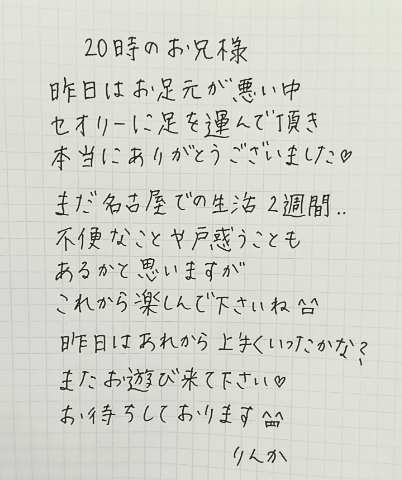 20時のお兄様
昨日はお足元が悪い中
セオリーに足を運んで頂き
本当にありがとうございました♡
まだ名古屋での生活2週間..
不便なことや戸惑うことも
あるかと思いますが
これから楽しんで下さいね^^
昨日はあれから上手くいったかな?
またお遊び来て下さい♡
お待ちしております^^
りんか